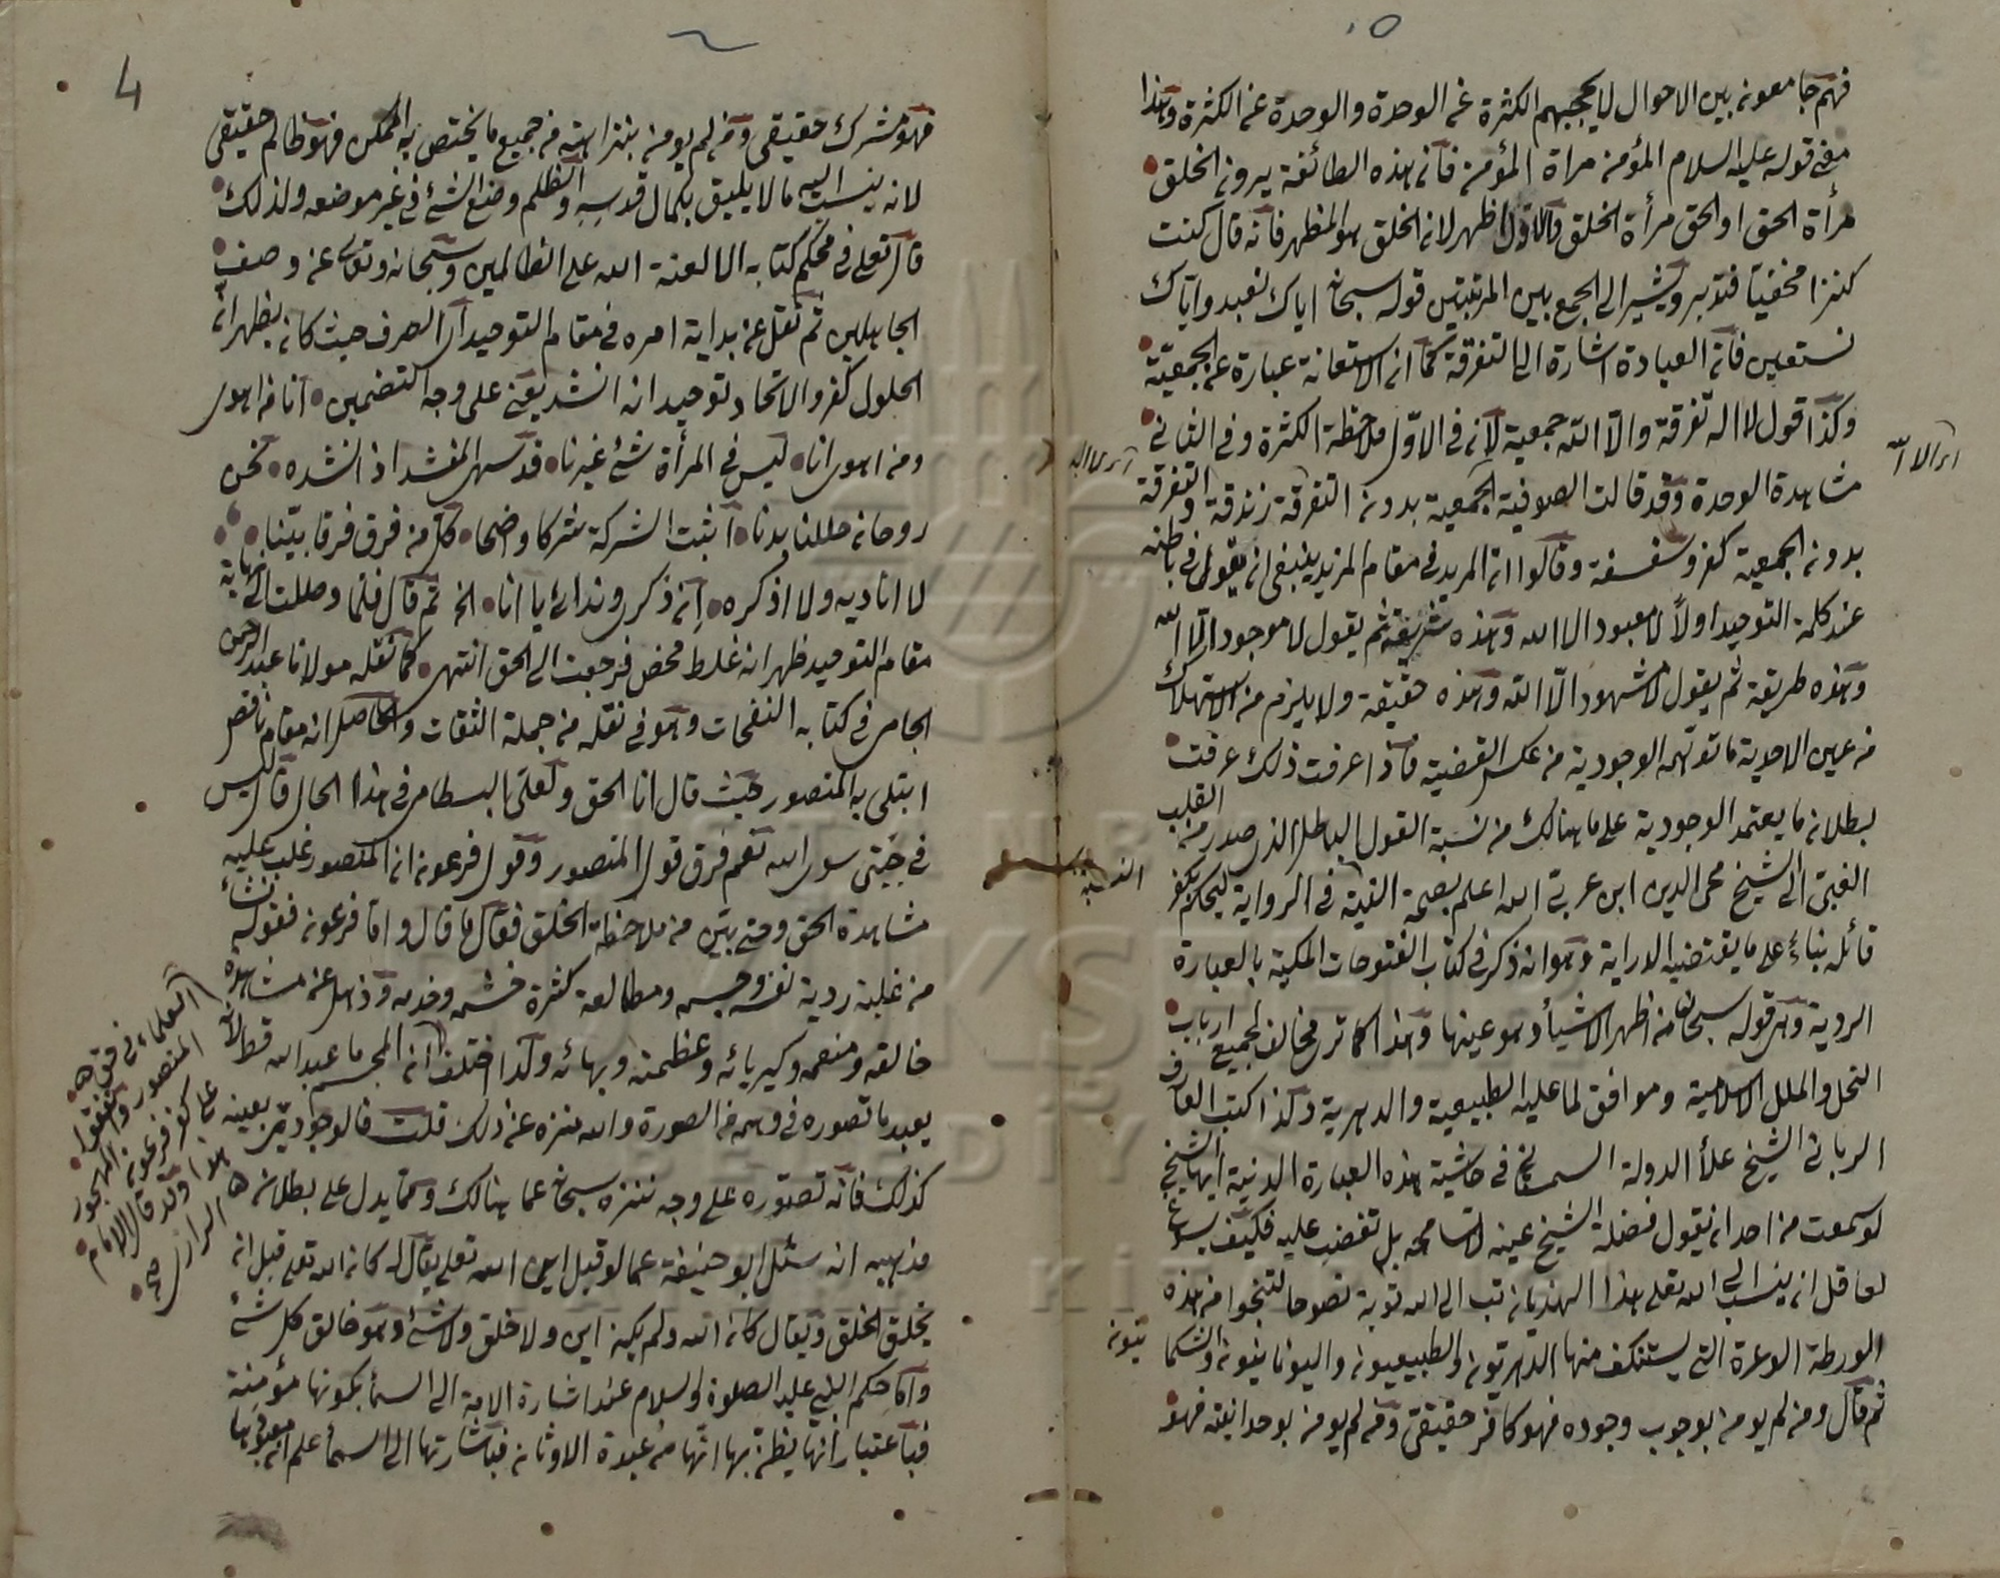 فهم جامعون بين الاحوال لا يحجبهم الكثرة عن الوحدة والوحدة عن الكثرة وهذا
معنى قوله عليه السلام المؤمن مرآة المؤمن فان هذه الطائفة يرون الخلق
مرأة الحق او الحق مرأة الخلق والاول اظهر لان الخلق هو المظهر فانه قال كنت
كنزا مخفيا فتدبر ويشير الى الجمع بين المرتبتين قوله سبحانه اياك نعبد واياك
نستعين فان العبادة اشارة الى التفرقة كما ان الاستعانة عبارة عن الجمعية
وكذا قول لا اله تفرقة والا الله جمعية لان في الاول ملاحظة الكثرة وفي الثاني
اى الا الله
اى لا اله
مشاهدة الوحدة وقد قالت الصوفية الجمعية بدون التفرقة زندقة والتفرقة
بدون الجمعية كفر وسفسفة وقالوا ان المريد في مقام المزيد ينبغى ان يقول في باطنه
عند كلمة التوحيد اولا لا معبود الا الله وهذه شريعة ثم يقول لا موجود الا الله
وهذه طريقة ثم يقول لا مشهود الا الله وهذه حقيقة ولا يلزم من الاستهلاك
في عين الاحدية ما توهمه الوجودية من عكس القضية فاذا عرفت ذلك عرفت
بطلان ما يعتمد الوجودية على ما هنالك من نسبة القول الباطل الذى صدر من القلب
الغبى الى الشيخ محى الدين ابن عربى الله اعلم بصحة النسبة في الرواية ليحكم بكفر
النسبة
قائله بناء على ما يقتضيه الدراية وهو انه ذكر في كتاب الفتوحات المكية بالعبارة
الردية وهى قوله سبحان من اظهر الاشيأ وهو عينها وهذا كما ترى مخالف لجميع ارباب
النحل والملل الاسلامية وموافق لما عليه الطبيعية والدهرية ولذا كتب العارف
الربانى الشيخ علأ الدولة السمنانى في حاشية هذه العبارة الدنية ايها الشيخ
لو سمعت من احد انه يقول فضلة الشيخ عينه لا تسامحه بل تغضب عليه فكيف يسوغ
لعاقل ان ينسب الى الله تعالى هذا الهذيان تب الى الله توبة نصوحا لتنجوا من هذه
الورطة الوعرة التى يستنكف منها الدهريون والطبيعيون واليونانيون والشكمانيون
ثم قال ومن لم يومن بوجوب وجوده فهو كافر حقيقى ومن لم يومن بوحدانيته فهو
4
فهو مشرك حقيقى ومن لم يومن بنزاهته من جميع ما يختص به الممكن فهو ظالم حقيقى
لانه ينسب اليه ما لا يليق بكمال قدسه والظلم وضع الشئ في غير موضعه ولذلك
قال تعالى في محكم كتابه الا لعنة الله على الظالمين وسبحانه وتعالى عن وصف
الجاهلين ثم نقل عن بداية امره في مقام التوحيد الصرف حيث كان يظهر انه
الحلول كفر والاتحاد توحيد انه انشد يعنى على وجه التضمين انا من اهوى
ومن اهوى انا ليس في المرأة شئ غيرنا قد سهى المنشد اذ انشده نحن
روحان حللنا بدنا اثبت الشركة شركا واضحا كل من فرق فرقا بيننا
لا اناديه ولا اذكره ان ذكرى وندائى يا انا الخ ثم قال فلما وصلت الى نهاية
مقام التوحيد ظهر انه غلط محض فرجعت الى الحق انتهى كما نقله مولانا عبد الرحمن
الجامى في كتابه النفحات وهو في نقله من جملة الثقات والحاصل انه مقام ناقص
ابتلى به المنصور حيث قال انا الحق ولعل البسطامى في هذا الحال قال ليس
في جبتى سوى الله نعم فرق قول المنصور وقول فرعون ان المنصور غلب عليه
مشاهدة الحق ومتى بين من ملاحظة الخلق فقال ما قال واما فرعون فقوله نشأ
من غلبة ردية نفسه وجسمه ومطالعة كثرة حشمه وخدمه وذهل عن مشاهدة
خالقه ومنعمه وكبريائه وعظمته وبهائه ولذا اختلف ان المجسم ما عبد الله قط لانه
يعبد ما تصوره في وهمه من الصورة والله منزه عن ذلك قلت فالوجودية بعينه
كذلك فانه تصوره على وجه ننزه سبحانه عما هنالك ومما يدل على بطلان
مذهبه انه سئل ابو حنيفة عما لو قيل اين الله تعالى يقال له كان الله تعالى قبل ان
يخلق الخلق ويقال كان الله ولم يكن اين ولا خلق ولا شئ وهو خالق كل شئ
واما حكم النبي عليه الصلوة والسلام عند اشارة الامة الى السمأ بكونها مؤمنة
فباعتبار انها يظن بها انها من عبدة الاوثان فباشارتها الى السمأ علم انه معبودها
العلماء في فرق
المنصور والمهجور
على كفر فرعون
هذا وقد قال الامام
الرازى صح